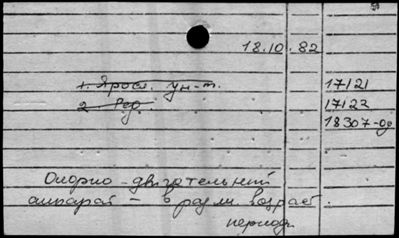 18.10.82
1. Яросл. ун-т. 17121
2. Ред. 17122
18307-од
Опорно-двигательный
аппарат - в разл. возраст.
периоды